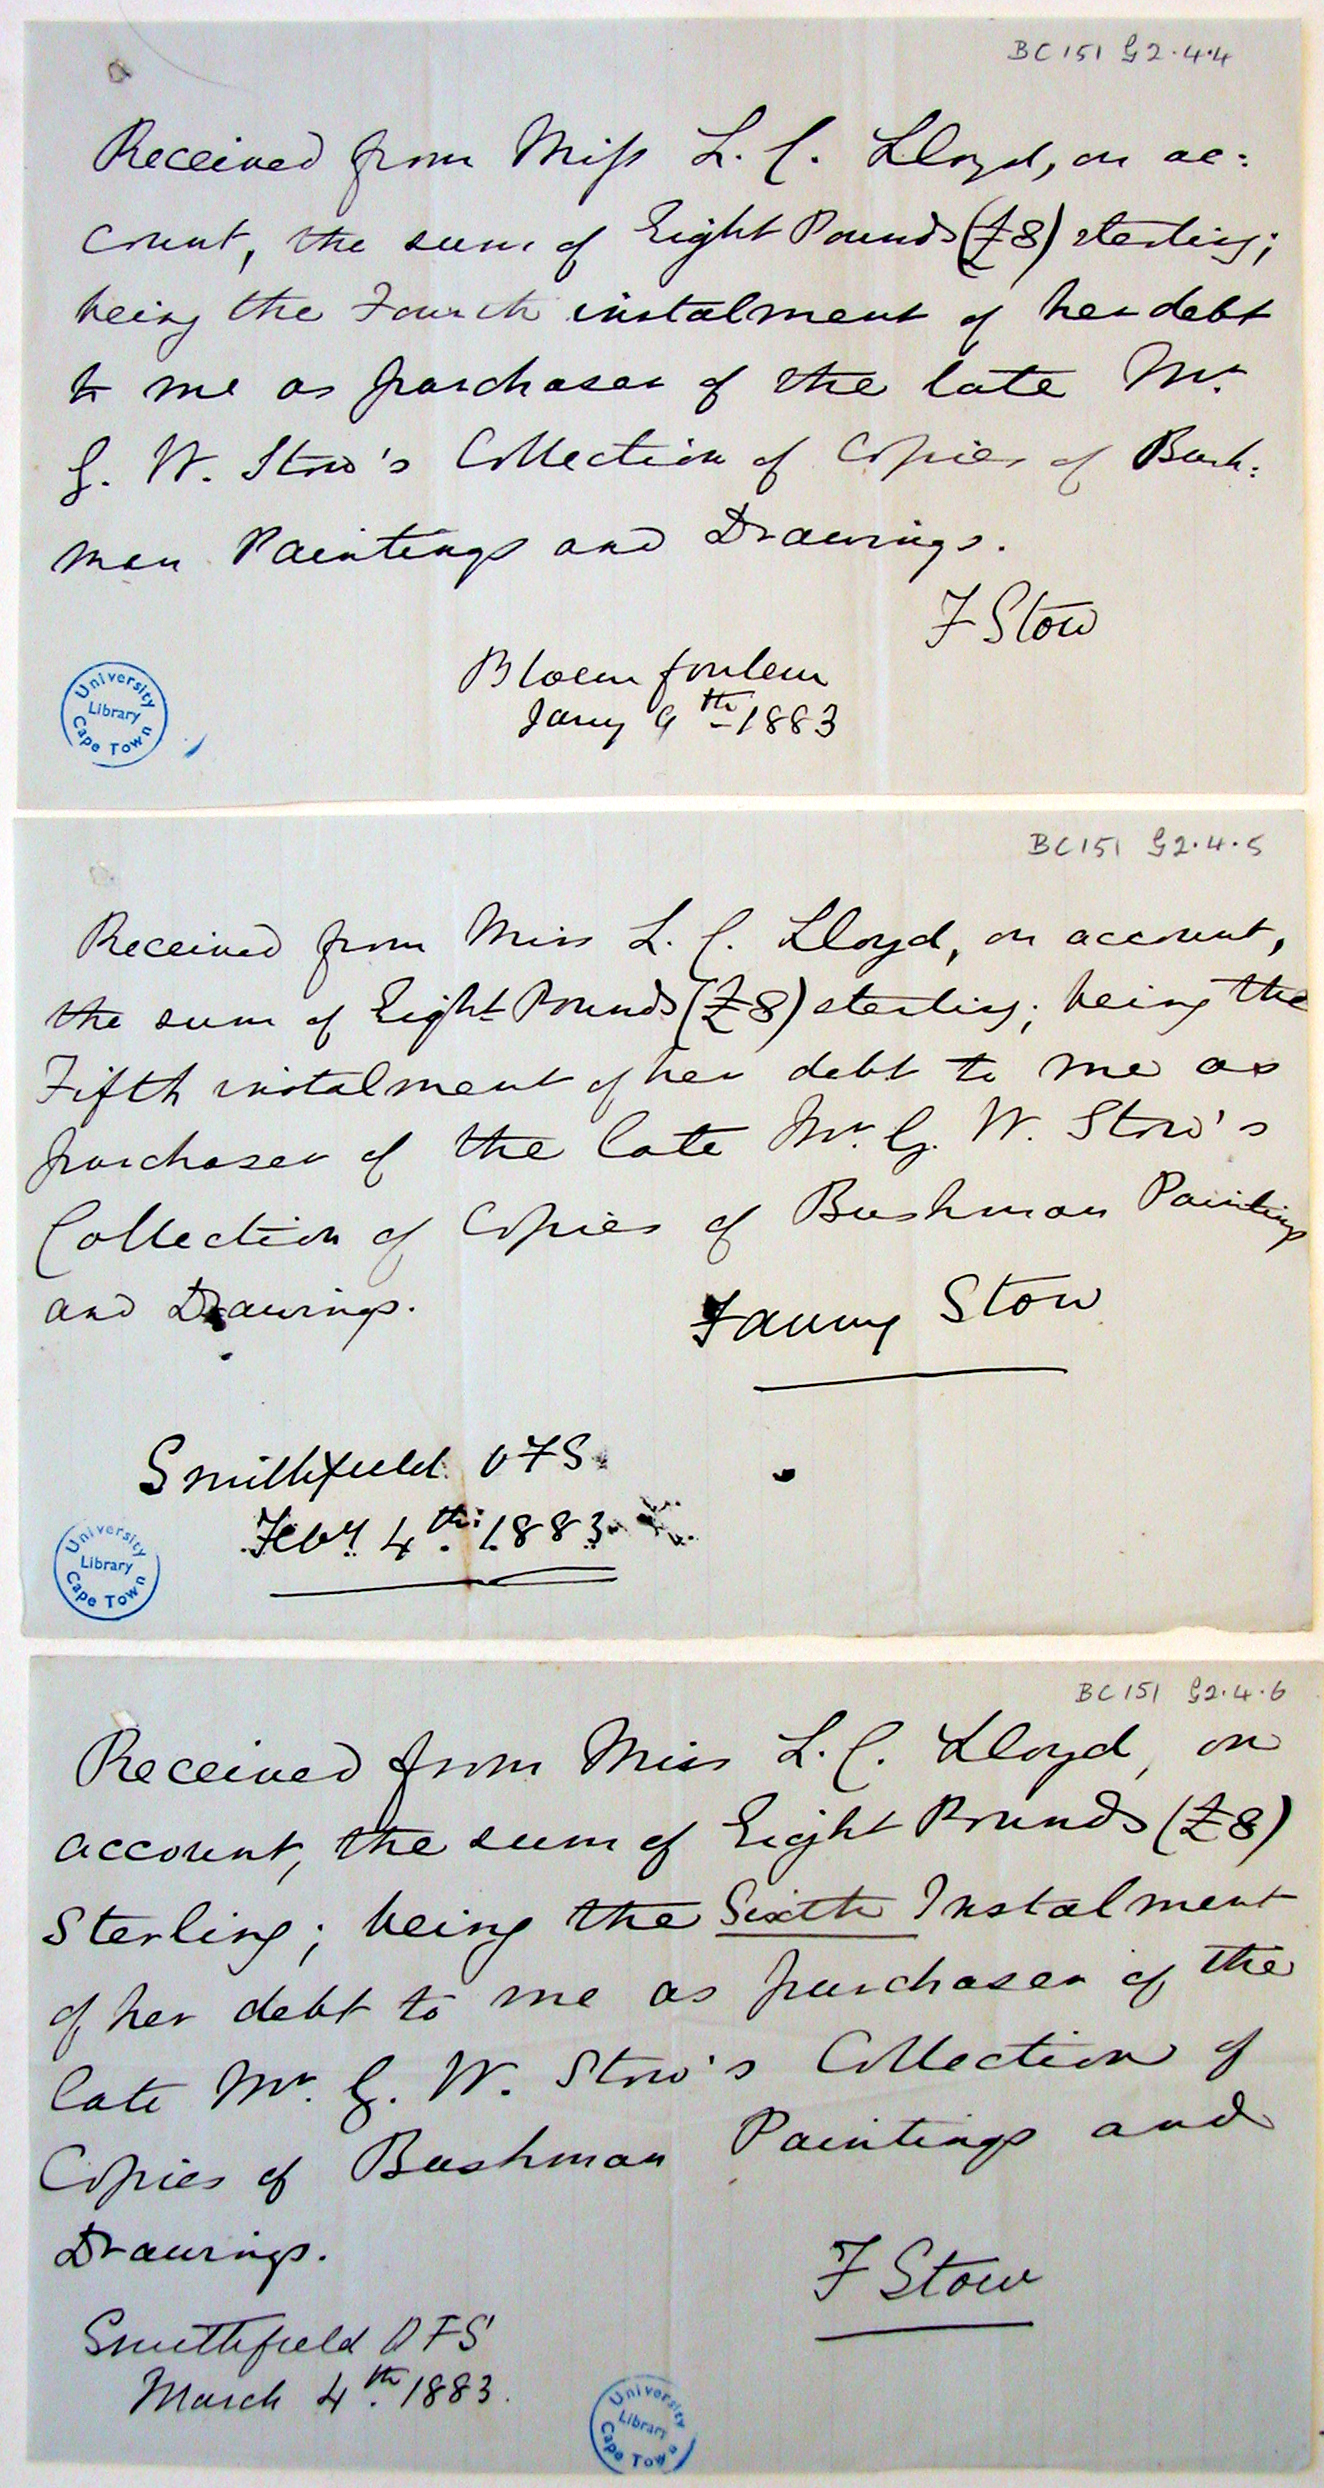 BC151 G2.4.4
Received from Miss L. C. Lloyd, on ac:
count, the sum of Eight Pounds (£8) sterling;
being the Fourth instalment of her debt
to me as purchaser of the late Mr.
G. W. Stow's Collection of Copies of Bush:
man Paintings and Drawings.
F Stow
Bloemfontein
Jany 9th 1883
University
Library
Cape Town
BC151 G2.4.5
Received from Miss L. C. Lloyd, on account,
the sum of Eight Pounds (£8) sterling; being the
Fifth instalment of her debt to me as
purchaser of the late Mr. G. W. Stow's
Collection of Copies of Bushman Paintings
and Drawings.
Fanny Stow
Smithfield OFS
Feby 4th: 1883
University
Library
Cape Town
BC151 G2.4.6
Received from Miss L. C. Lloyd, on
account, the sum of Eight Pounds (£8)
Sterling; being the Sixth Instalment
of her debt to me as purchaser of the
late Mr. G. W. Stow's Collection of
Copies of Bushman Paintings and
Drawings.
F Stow
Smithfield OFS
March 4th. 1883.
University
Library
Cape Town